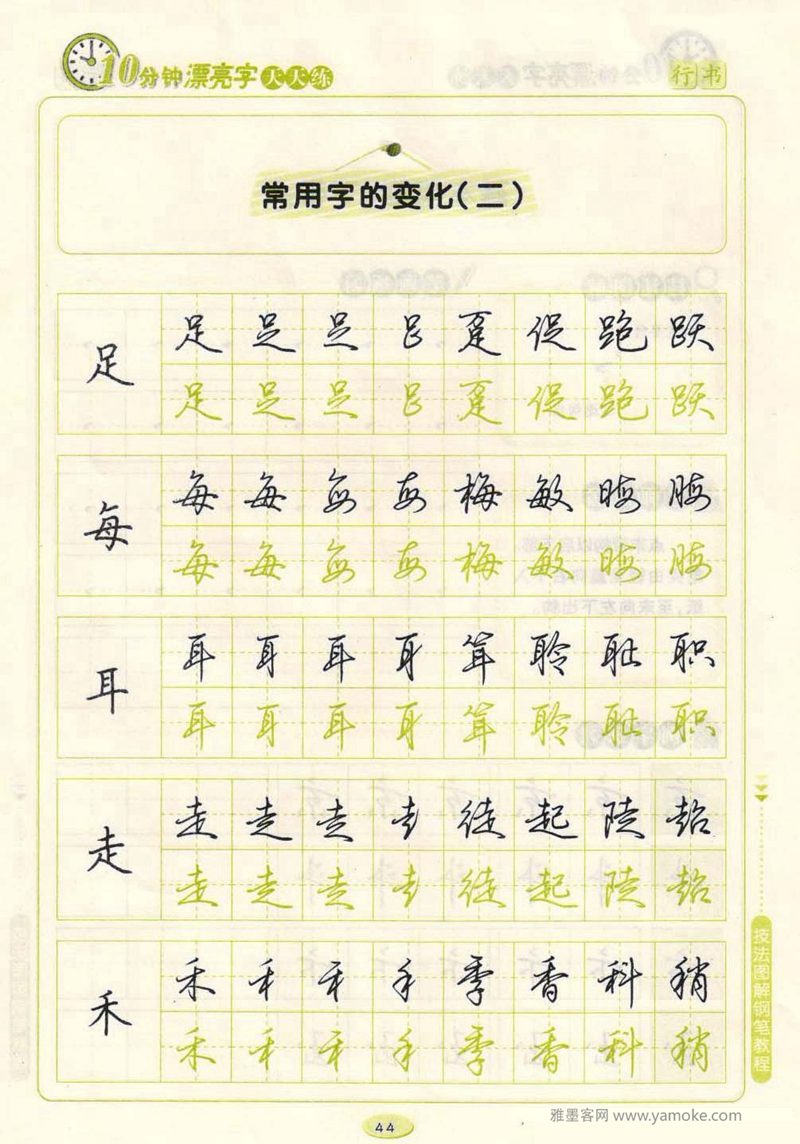 10分钟漂亮字天天练
行书
常用字的变化(二)
足 足 足 足 足 趸 促 跑 跃
足 足 足 足 趸 促 跑 跃
每 每 每 每 每 梅 敏 晦 脢
每 每 每 每 梅 敏 晦 脢
耳 耳 耳 耳 耳 耸 聆 耻 职
耳 耳 耳 耳 耸 聆 耻 职
走 走 走 走 走 徒 起 陡 超
走 走 走 走 徒 起 陡 超
禾 禾 禾 禾 禾 季 香 科 稍
禾 禾 禾 禾 季 香 科 稍
技法图解钢笔教程
44
雅墨客网 www.yamoke.com